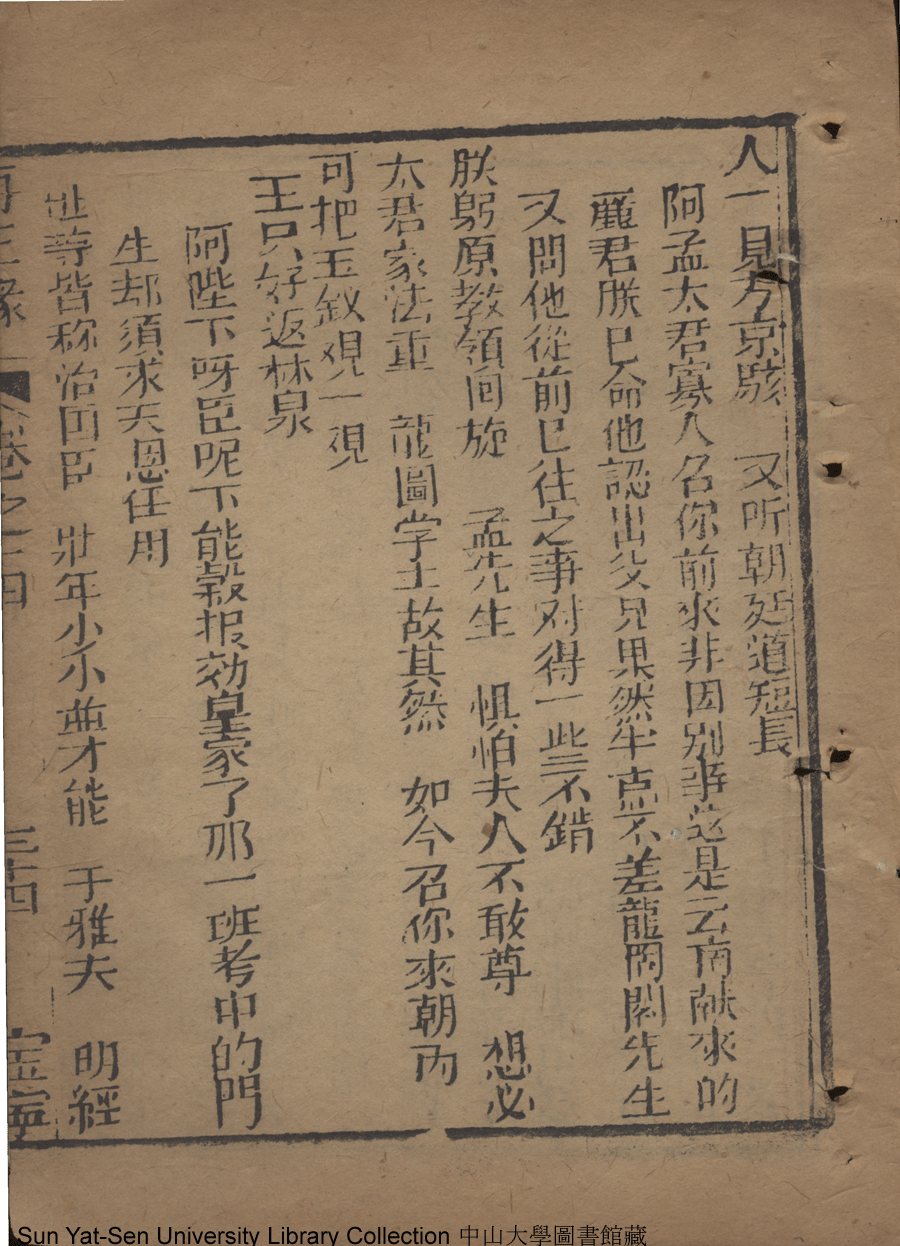 人一見方京駭　又听朝廷道短長
阿孟太君寡人名你前來非因別事這是云南献來的
麗君朕已命他認出父兄果然半点不差龍图閣先生
又問他從前已往之事对得一些不錯
朕躬原教領向旋　孟先生　惧怕夫人不敢尊　想必
太君家法重　龍圖学士故其然　如今召你來朝內
可把玉釵覌一覌
王只好返林泉
阿陛下呀臣呢不能彀报効皇家了那一班考中的門
生却須求天恩任用
等皆称治囯臣　壯年少小並才能　于雅夫　明經
再生緣　卷之二十四　三十四　宝寧
Sun Yat-Sen University Library Collection 中山大學圖書館藏